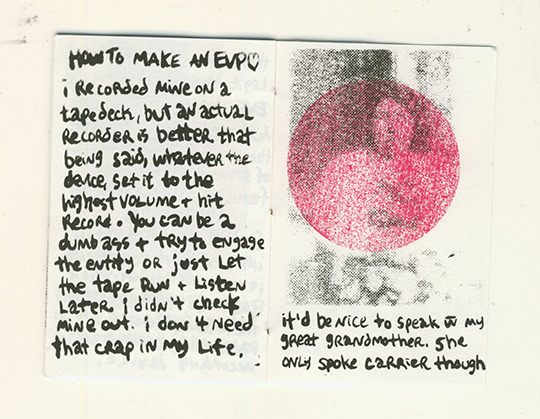 HOW TO MAKE AN EVP♡
i RECORDED MINE ON A
tapedeck, but AN ACTUAL
RECORDER is better that
being said, whatever the
device, set it to the
highest VOLUME + hit
RECORD. YOU CAN BE A
dumbass + try to engage
the entity OR just Let
the tape RUN + Listen
Later. i didn't check
MINE out. i don't NEED
that crap in My Life.
it'd be NICE to speak w̄ my
great grandmother. She
ONLY spoke CARRIER though